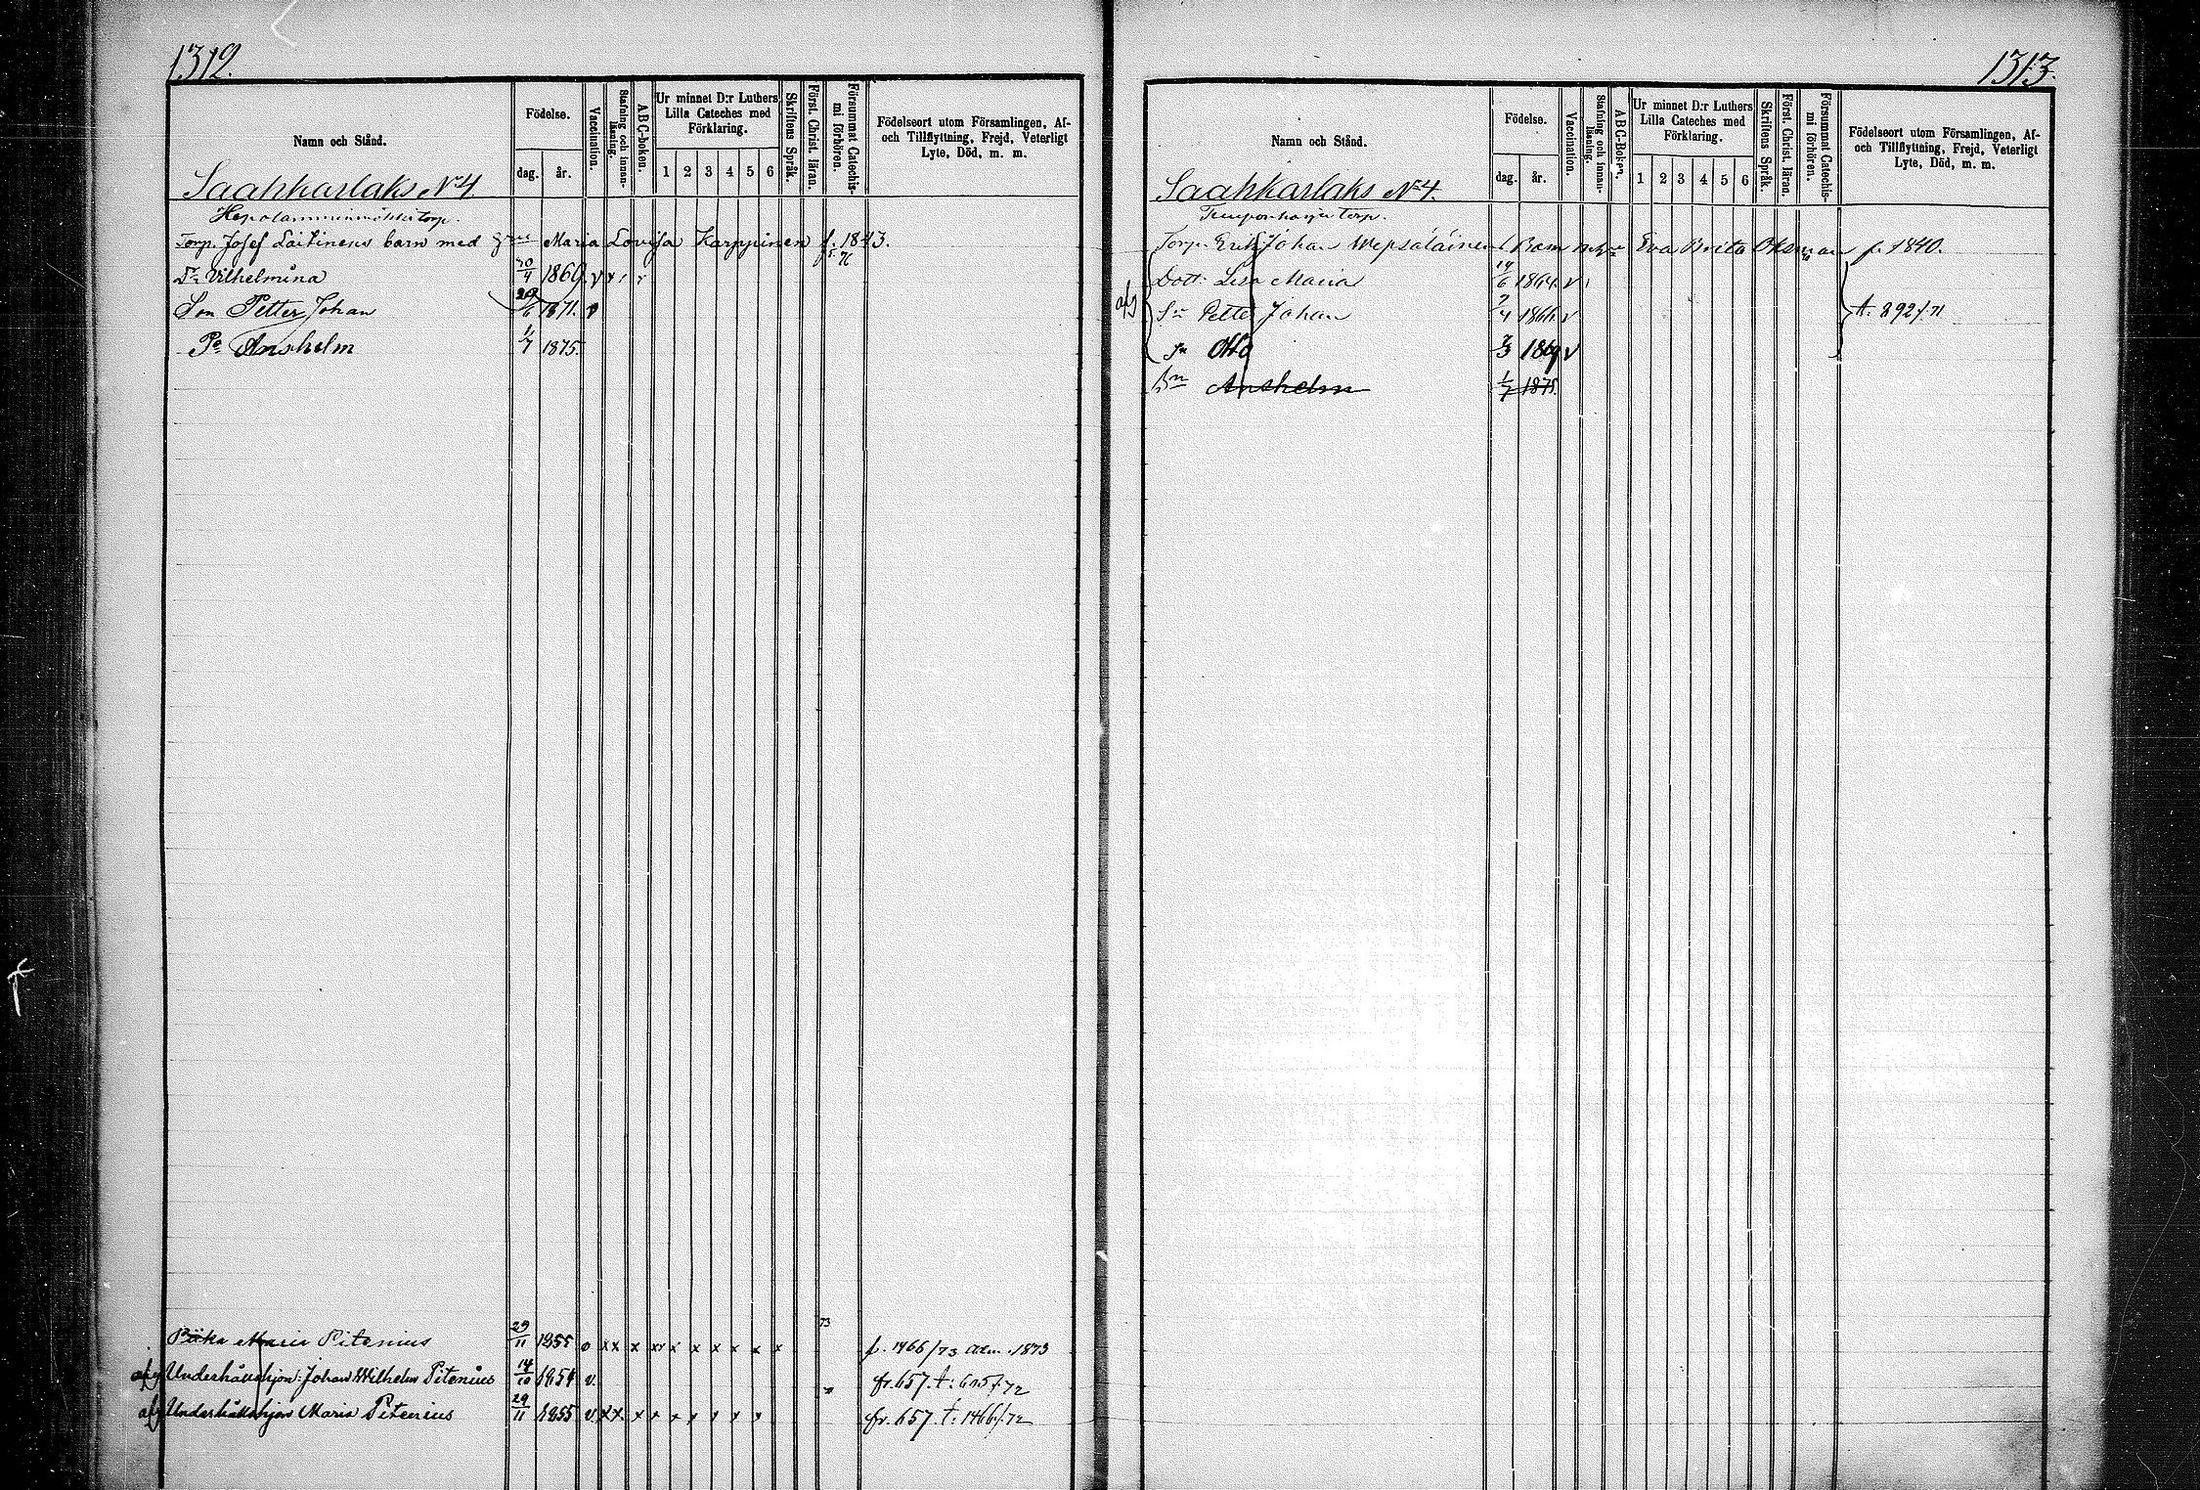 1312.
Namn och Stånd.
Födelse.
dag. år.
Vaccination.
Stafning och innan-läsning.
A B C-boken.
Ur minnet D:r Luthers Lilla Cateches med Förklaring.
1 2 3 4 5 6
Skriftens Språk.
Först. Christ. läran.
Försummat Catechis-mi förhören.
Födelseort utom Församlingen, Af- och Tillflyttning, Frejd, Veterligt Lyte, Död, m. m.
Saahkarlaks No 4
torp.
Torp. Josef Laitinens barn med Maria Lovisa Karppinen f. 1843.
Dr Vilhelmina 1869. v
Son Petter Johan 1871. v
Po Anshelm 1/7 1875.
73
Maria Pitenius 29/11 1855 x x x x x x x x f. 1466/73 1873
afg Underhållshjon: Johan Wilhelm Pitenius 14/10 1854 v. fr. 657. t: 72
afg Underhållshjon Maria Pitenius 29/11 1855 v x x x x x x x x x fr. 657. t: 1466/72
1313.
Namn och Stånd.
Födelse.
dag. år.
Vaccination.
Stafning och innan-läsning.
A B C-Boken.
Ur minnet D:r Luthers Lilla Cateches med Förklaring.
1 2 3 4 5 6
Skriftens Språk.
Först. Christ. läran.
Försummat Catechis-mi förhören.
Födelseort utom Församlingen, Af- och Tillflyttning, Frejd, Veterligt Lyte, Död, m. m.
Saahkarlaks No 4.
torp.
Torp. Erik Johan Wepsäläinen Barn Eva Brita Oksman f. 1840.
Dott. Lisa Maria 14/6 1864. v
afg Sn Petter Johan 7/4 1866. v t. 892/71
Sn Otto 1869 v
Sn Anshelm 1/7 1875.